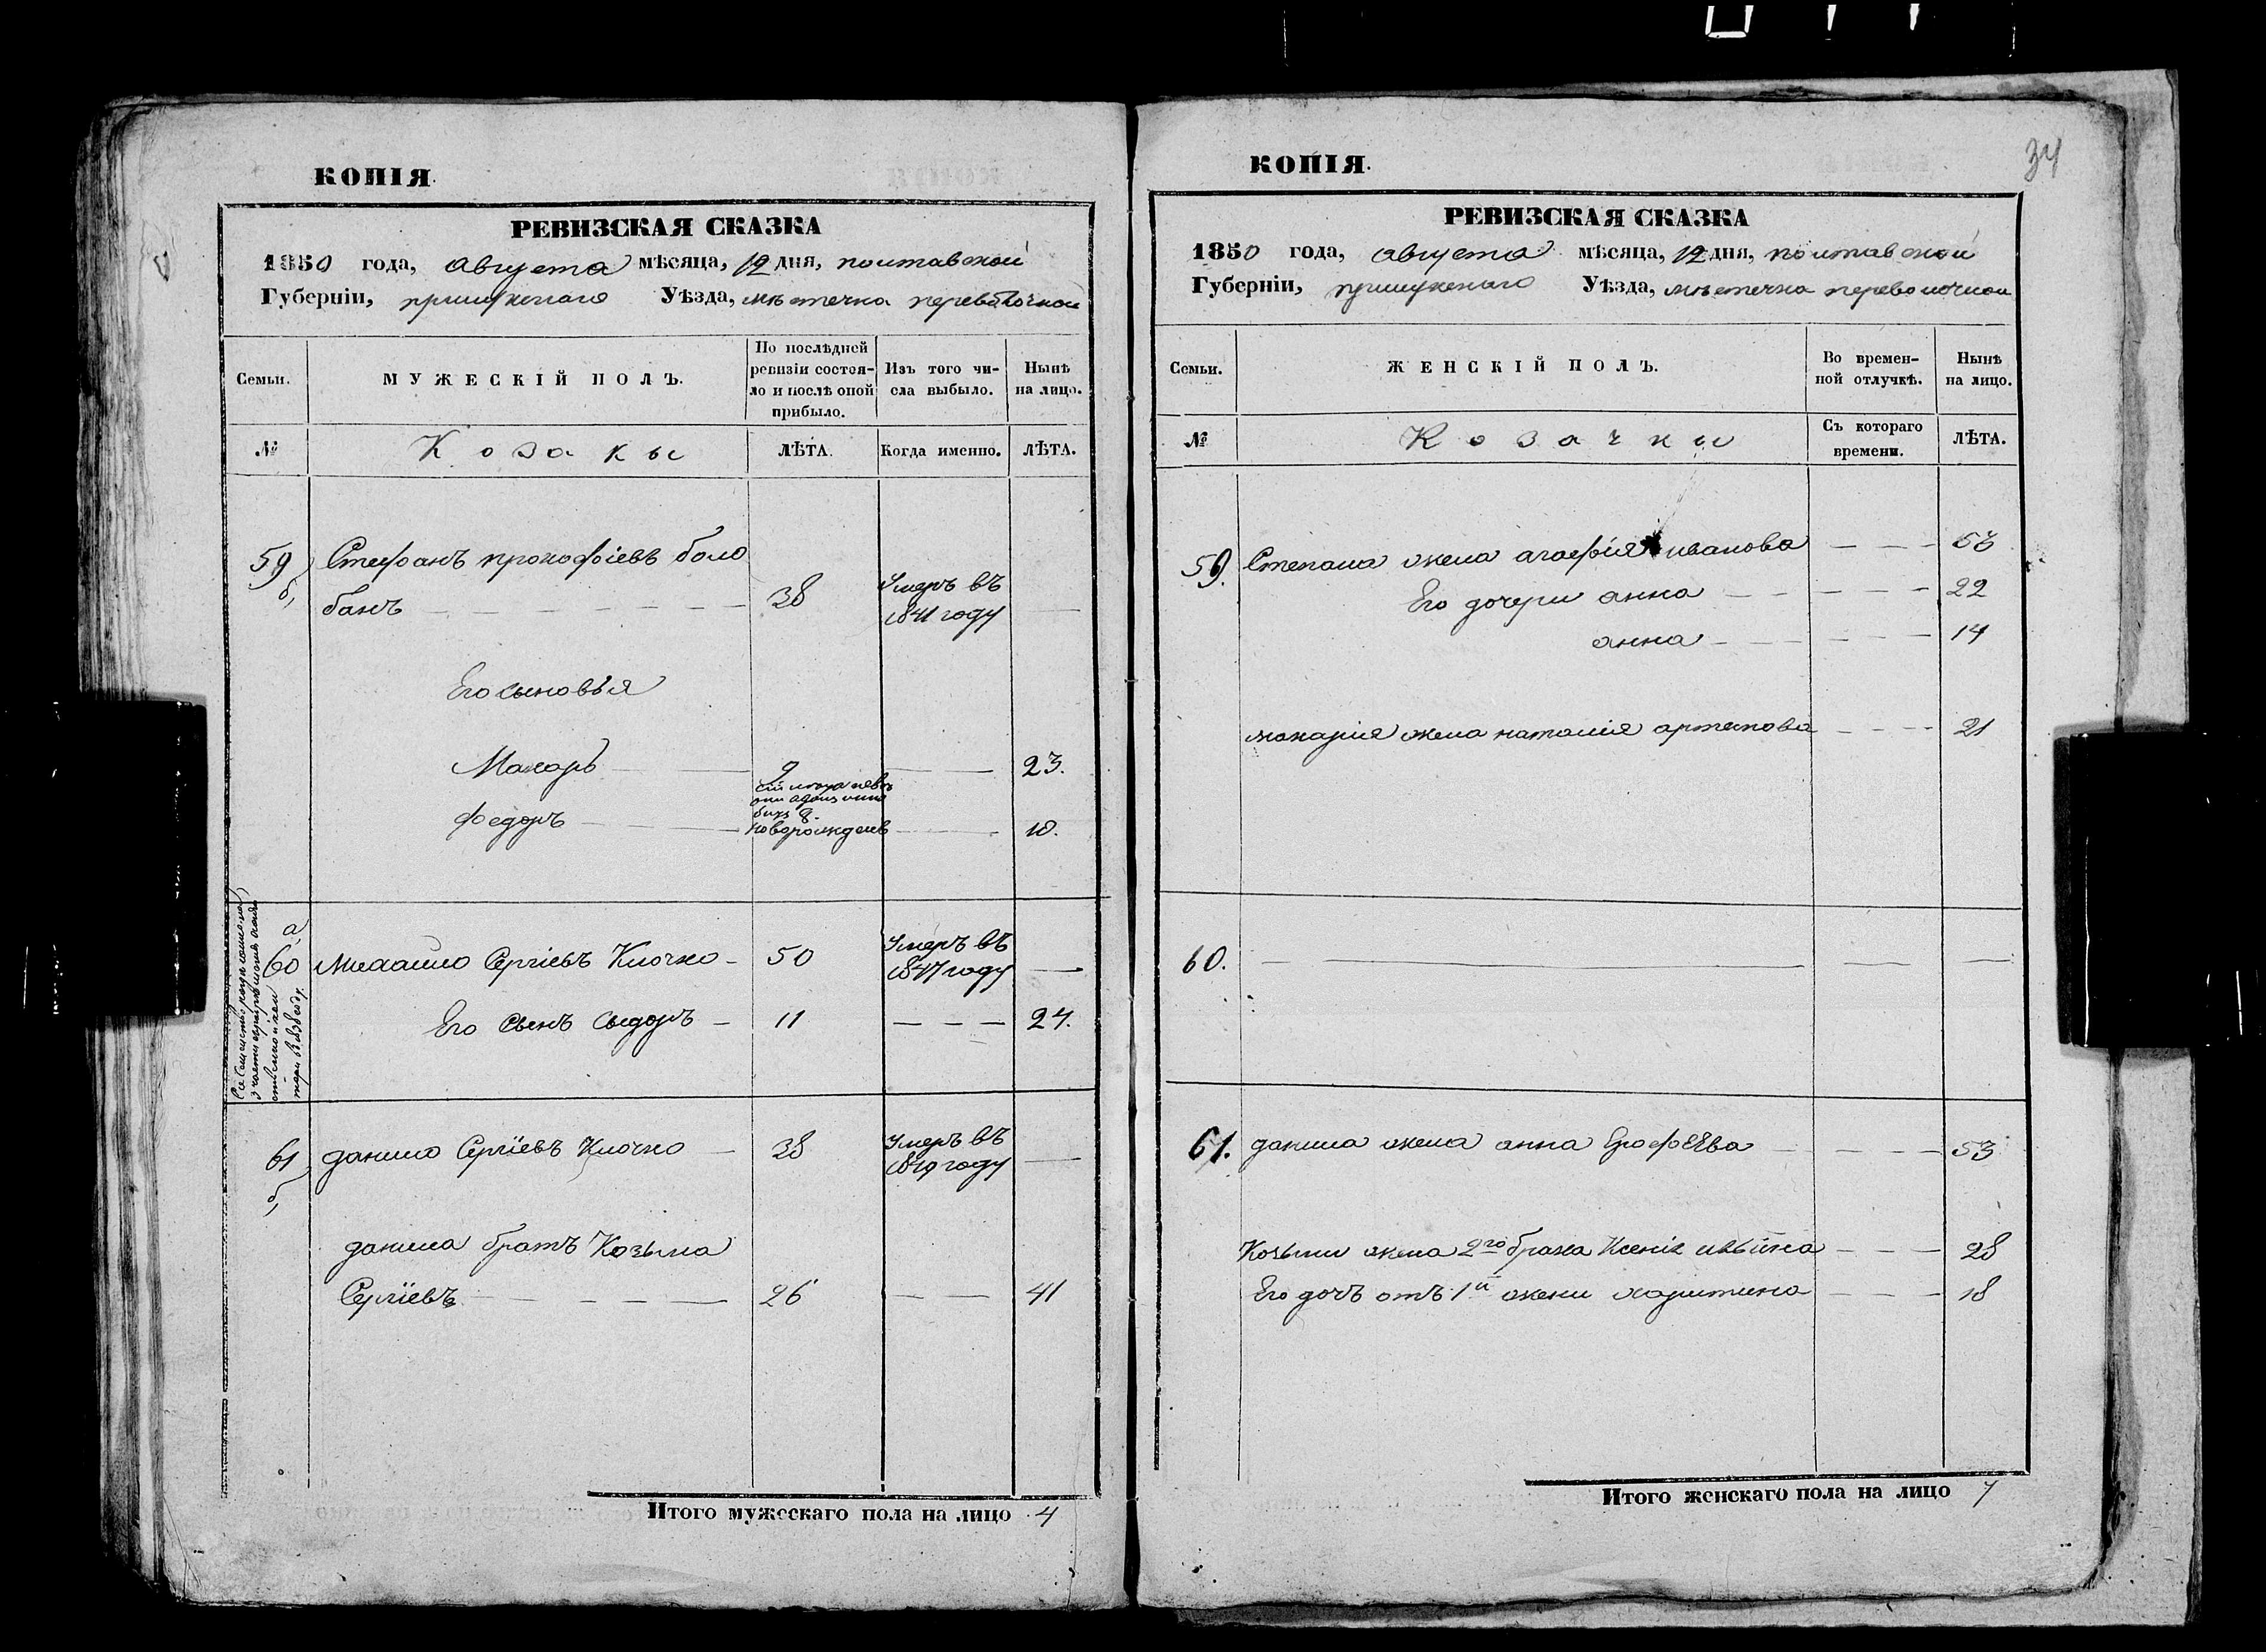 КОПІЯ.
РЕВИЗСКАЯ СКАЗКА
1850 года, августа мѣсяца, 12 дня, полтавской
Губерніи, прилукскаго Уѣзда, мѣстечка переволочной
Семьи.
МУЖЕСКІЙ ПОЛЪ.
По послѣдней ревизіи состояло и послѣ оной прибыло.
Изъ того числа выбыло.
Нынѣ на лицо.
№
Козаки
ЛѢТА.
Когда именно.
ЛѢТА.
59 Стефанъ прокофіевъ боло
б, банъ — 38 Умеръ въ 1841 году —
Его сыновья
Махаръ — 9 — 23.
Федоръ — новорожденъ — 10.
а
60 Михайло Сергіевъ Клочко — 50 Умеръ въ 1847 году —
Его сынъ сыдоръ — 11 — — — 24.
61 данило Сергіевъ Клочко — 38 Умеръ въ 1849 году —
б,
данила братъ Козьма
Сергіевъ — 26 — — 41
Итого мужескаго пола на лицо 4
34
КОПІЯ.
РЕВИЗСКАЯ СКАЗКА
1850 года, августа мѣсяца, 12 дня, полтавской
Губерніи, прилукскаго Уѣзда, мѣстечка переволочной
Семьи.
ЖЕНСКІЙ ПОЛЪ.
Во временной отлучкѣ.
Нынѣ на лицо.
№
Козачки
Съ котораго времени.
ЛѢТА.
59. Степана жена агафія иванова — — — 53
Его дочери анна — — — 22
анна — — — 14
макарія жена наталія артемова — — — 21
60. — — — —
61. данила жена анна Ерофѣева — — — 53
Козьми жена 2го брака Ксенія ильина — — — 28
Его дочъ отъ 1й жени харитина — — — 18
Итого женскаго пола на лицо 7